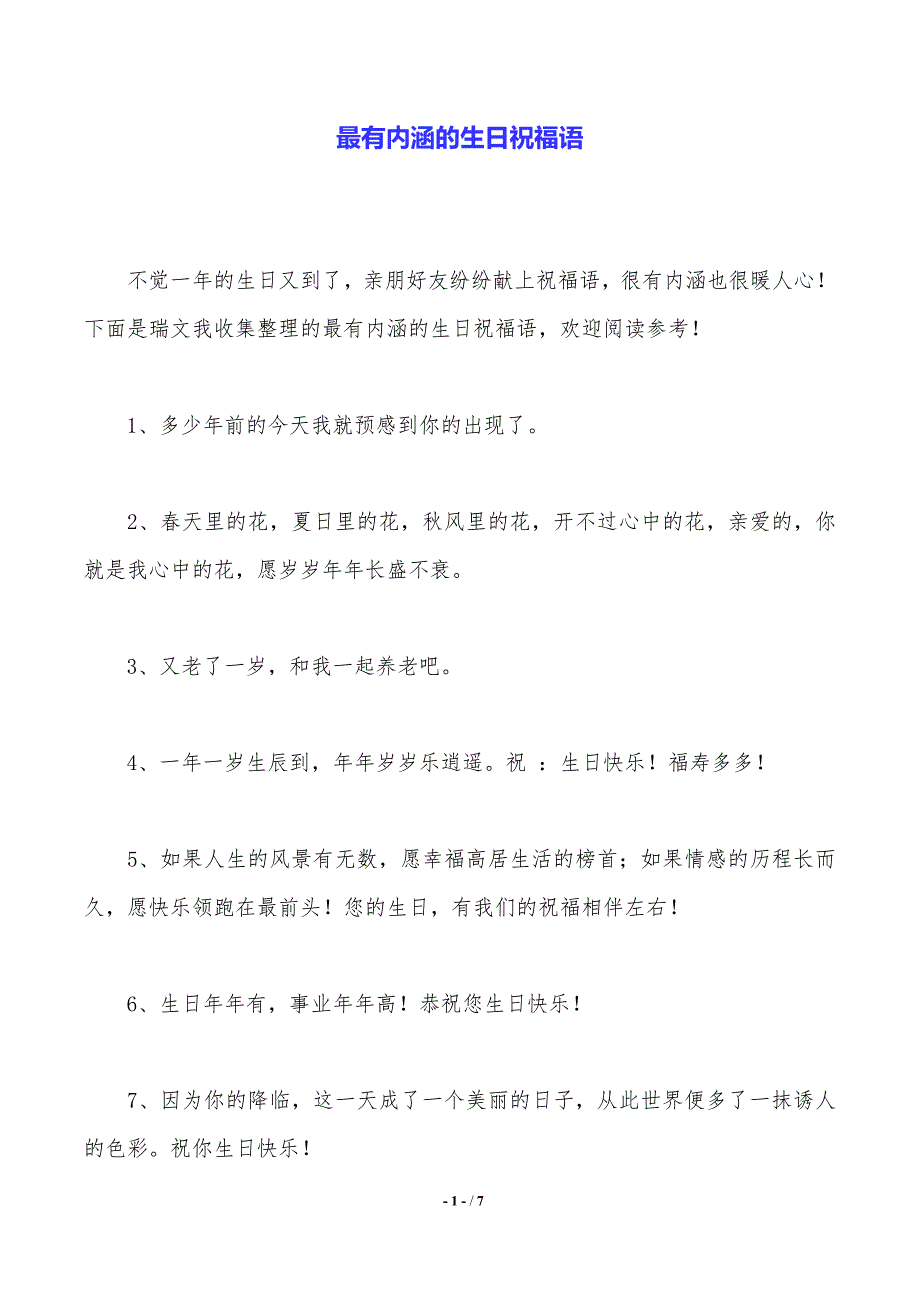 最有内涵的生日祝福语
不觉一年的生日又到了，亲朋好友纷纷献上祝福语，很有内涵也很暖人心！
下面是瑞文我收集整理的最有内涵的生日祝福语，欢迎阅读参考！
1、多少年前的今天我就预感到你的出现了。
2、春天里的花，夏日里的花，秋风里的花，开不过心中的花，亲爱的，你
就是我心中的花，愿岁岁年年长盛不衰。
3、又老了一岁，和我一起养老吧。
4、一年一岁生辰到，年年岁岁乐逍遥。祝 ：生日快乐！福寿多多！
5、如果人生的风景有无数，愿幸福高居生活的榜首；如果情感的历程长而
久，愿快乐领跑在最前头！您的生日，有我们的祝福相伴左右！
6、生日年年有，事业年年高！恭祝您生日快乐！
7、因为你的降临，这一天成了一个美丽的日子，从此世界便多了一抹诱人
的色彩。祝你生日快乐！
- 1 - / 7